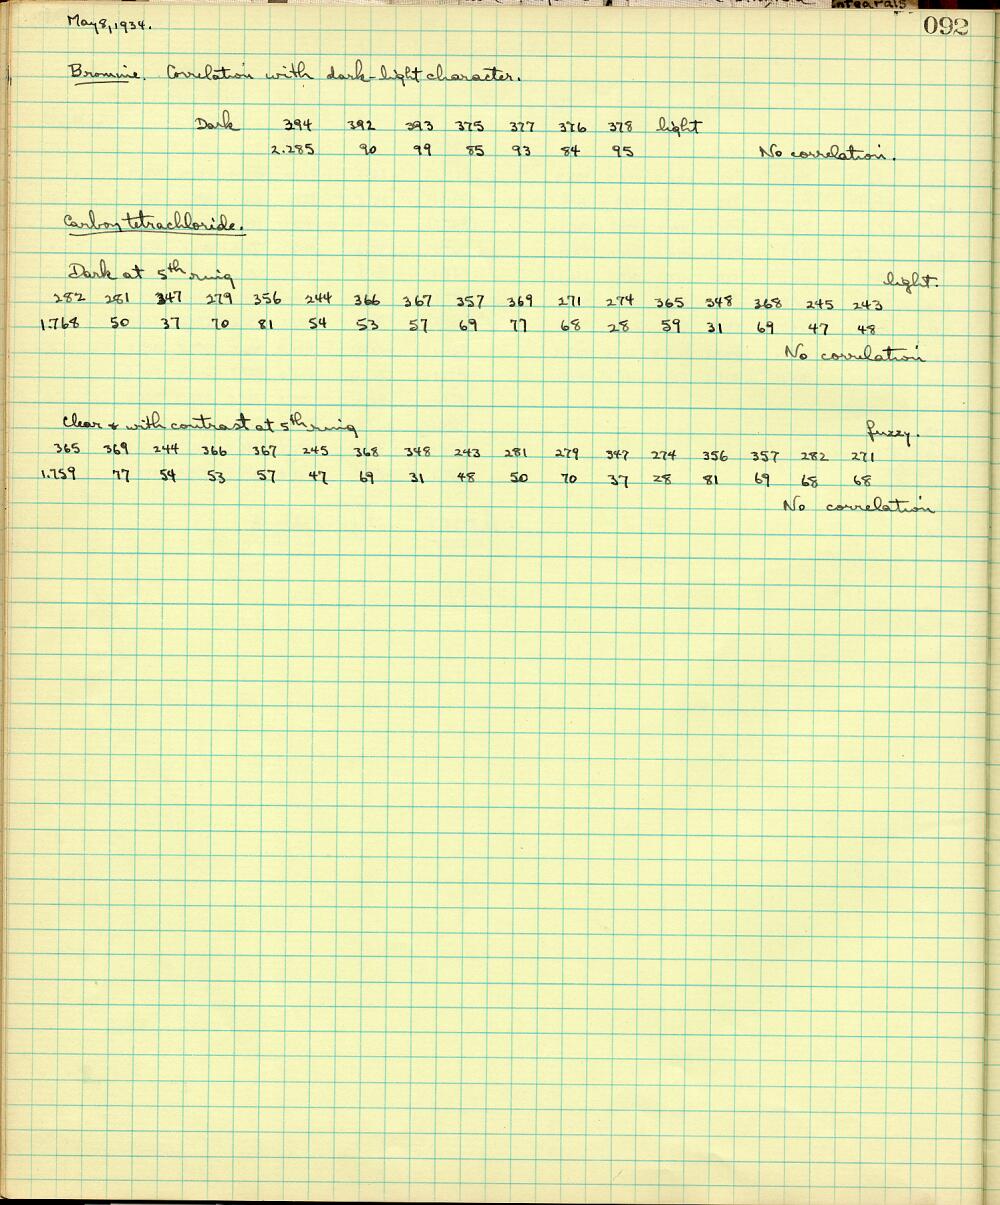 Integrals
May 8, 1934.
092
Bromine. Correlation with dark-light character.
Dark 394 392 393 375 377 376 378 light
2.285 90 99 85 93 84 95 No correlation.
Carbon tetrachloride.
Dark at 5th ring light.
282 281 347 279 356 244 366 367 357 369 271 274 365 348 368 245 243
1.768 50 37 70 81 54 53 57 69 77 68 28 59 31 69 47 48
No correlation
Clear & with contrast at 5th ring fuzzy.
365 369 244 366 367 245 368 348 243 281 279 347 274 356 357 282 271
1.759 77 54 53 57 47 69 31 48 50 70 37 28 81 69 68 68
No correlation